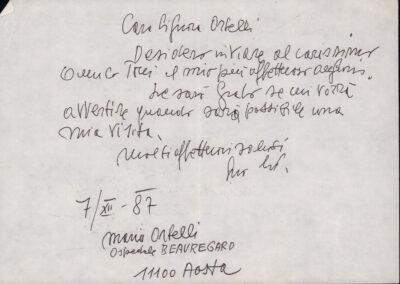 Cara Signora Ortelli
Desidero inviare al carissimo
amico Toni il mio più affettuoso augurio.
Le sarò grato se mi vorrà
avvertire quando sarà possibile una
mia visita.
Molti affettuosi saluti
7/XII-87
Maria Ortelli
Ospedale BEAUREGARD
11100 Aosta